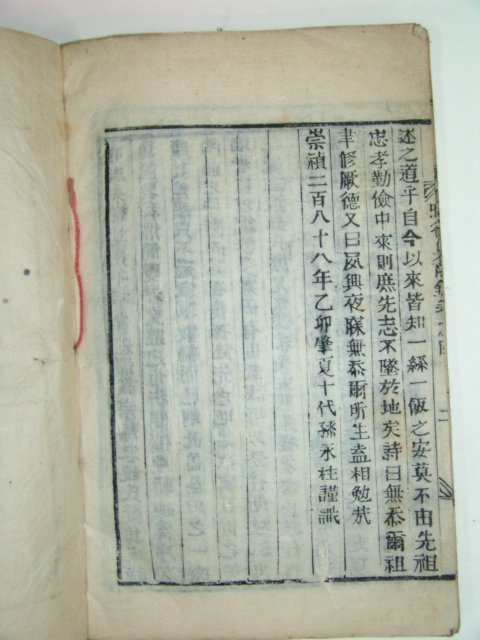 述之道乎自今以來皆知一絲一飯之安莫不由先祖
忠孝勤儉中來則庶先志不墜於地矣詩曰無忝爾祖
聿修厥德又曰夙興夜寐無忝爾所生盍相勉㢤
崇禎二百八十八年乙卯肇夏十代孫永柱謹識
二